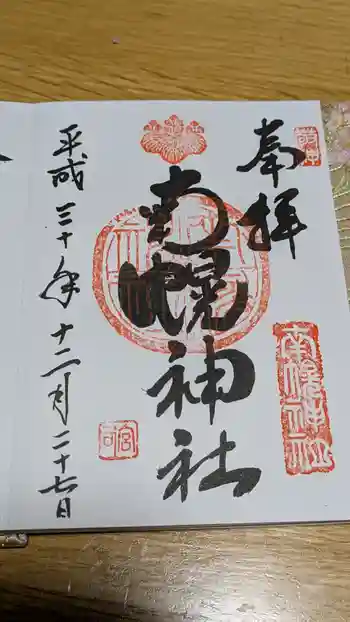 奉拝
南幌神社
南幌神社
宮司
平成三十年十二月二十七日